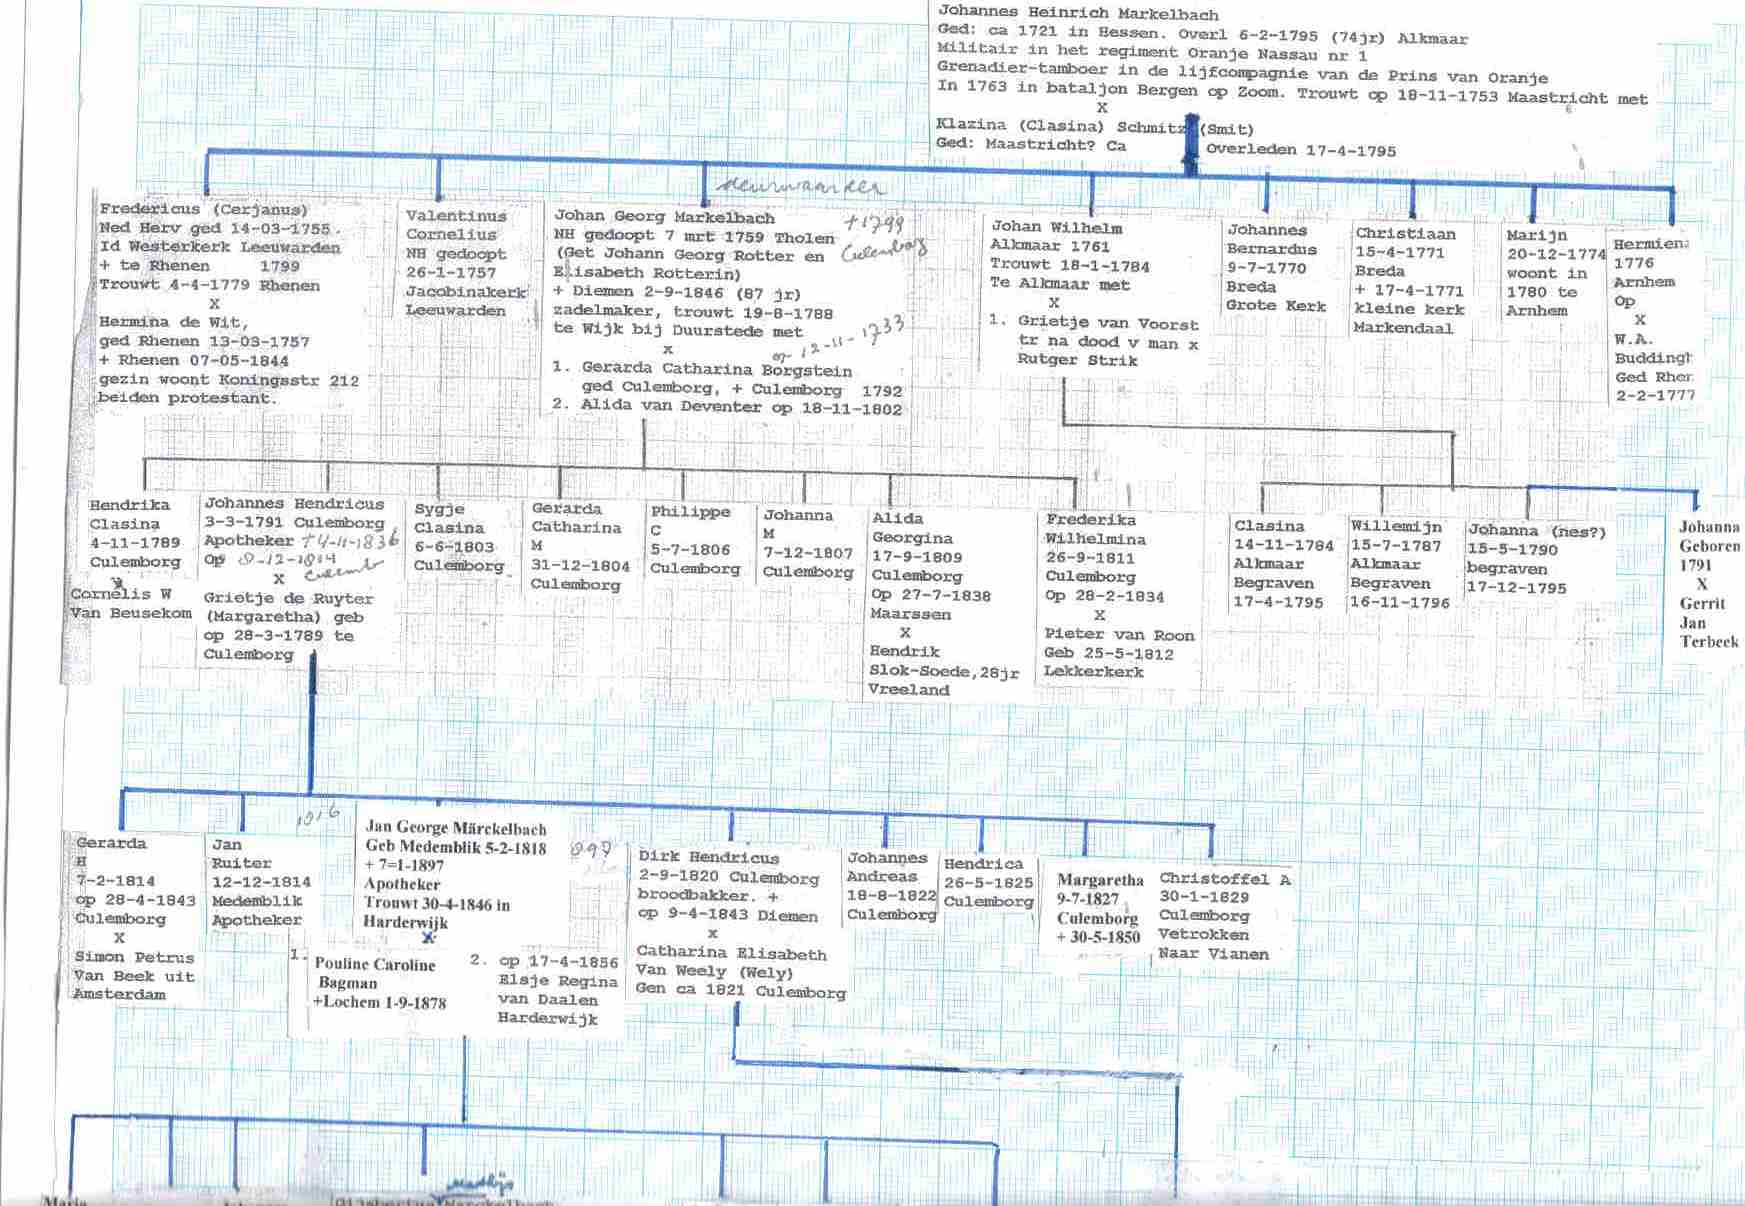 Johannes Heinrich Markelbach
Ged: ca 1721 in Hessen. Overl 6-2-1795 (74jr) Alkmaar
Militair in het regiment Oranje Nassau nr 1
Grenadier-tamboer in de lijfcompagnie van de Prins van Oranje
In 1763 in bataljon Bergen op Zoom. Trouwt op 18-11-1753 Maastricht met
X
Klazina (Clasina) Schmitz (Smit)
Ged: Maastricht? Ca Overleden 17-4-1795
Fredericus (Cerjanus)
Ned Herv ged 14-03-1755.
Id Westerkerk Leeuwarden
+ te Rhenen 1799
Trouwt 4-4-1779 Rhenen
X
Hermina de Wit,
ged Rhenen 13-03-1757
+ Rhenen 07-05-1844
gezin woont Koningsstr 212
beiden protestant.
Valentinus
Cornelius
NH gedoopt
26-1-1757
Jacobinakerk
Leeuwarden
deurwaarder
Johan Georg Markelbach
+1799
NH gedoopt 7 mrt 1759 Tholen
Culemborg
(Get Johann Georg Rotter en
Elisabeth Rotterin)
+ Diemen 2-9-1846 (87 jr)
zadelmaker, trouwt 19-8-1788
te Wijk bij Duurstede met
X
op 12-11-1733
1. Gerarda Catharina Borgstein
ged Culemborg, + Culemborg 1792
2. Alida van Deventer op 18-11-1802
Johan Wilhelm
Alkmaar 1761
Trouwt 18-1-1784
Te Alkmaar met
X
1. Grietje van Voorst
tr na dood v man x
Rutger Strik
Johannes
Bernardus
9-7-1770
Breda
Grote Kerk
Christiaan
15-4-1771
Breda
+ 17-4-1771
kleine kerk
Markendaal
Marijn
20-12-1774
woont in
1780 te
Arnhem
Hermien
1776
Arnhem
Op
X
W.A.
Budding
Ged Rhen
2-2-1777
Hendrika
Clasina
4-11-1789
Culemborg
x
Cornelis W
Van Beusekom
Johannes Hendricus
3-3-1791 Culemborg
Apotheker +4-11-1836
Op 8-12-1814
X Culemb
Grietje de Ruyter
(Margaretha) geb
op 28-3-1789 te
Culemborg
Sygje
Clasina
6-6-1803
Culemborg
Gerarda
Catharina
M
31-12-1804
Culemborg
Philippe
C
5-7-1806
Culemborg
Johanna
M
7-12-1807
Culemborg
Alida
Georgina
17-9-1809
Culemborg
Op 27-7-1838
Maarssen
X
Hendrik
Slok-Soede,28jr
Vreeland
Frederika
Wilhelmina
26-9-1811
Culemborg
Op 28-2-1834
X
Pieter van Roon
Geb 25-5-1812
Lekkerkerk
Clasina
14-11-1784
Alkmaar
Begraven
17-4-1795
Willemijn
15-7-1787
Alkmaar
Begraven
16-11-1796
Johanna (nes?)
15-5-1790
begraven
17-12-1795
Johanna
Geboren
1791
X
Gerrit
Jan
Terbeek
Gerarda
H
7-2-1814
op 28-4-1843
Culemborg
X
Simon Petrus
Van Beek uit
Amsterdam
Jan
Ruiter
12-12-1814
Medemblik
Apotheker
1816
Jan George Märckelbach
Geb Medemblik 5-2-1818
+ 7=1-1897
Apotheker
Trouwt 30-4-1846 in
Harderwijk
X
1. Pouline Caroline
Bagman
+Lochem 1-9-1878
2. op 17-4-1856
Elsje Regina
van Daalen
Harderwijk
897
Dirk Hendricus
2-9-1820 Culemborg
broodbakker. +
op 9-4-1843 Diemen
X
Catharina Elisabeth
Van Weely (Wely)
Gen ca 1821 Culemborg
Johannes
Andreas
18-8-1822
Culemborg
Hendrica
26-5-1825
Culemborg
Margaretha
9-7-1827
Culemborg
+ 30-5-1850
Christoffel A
30-1-1829
Culemborg
Vetrokken
Naar Vianen
Maria